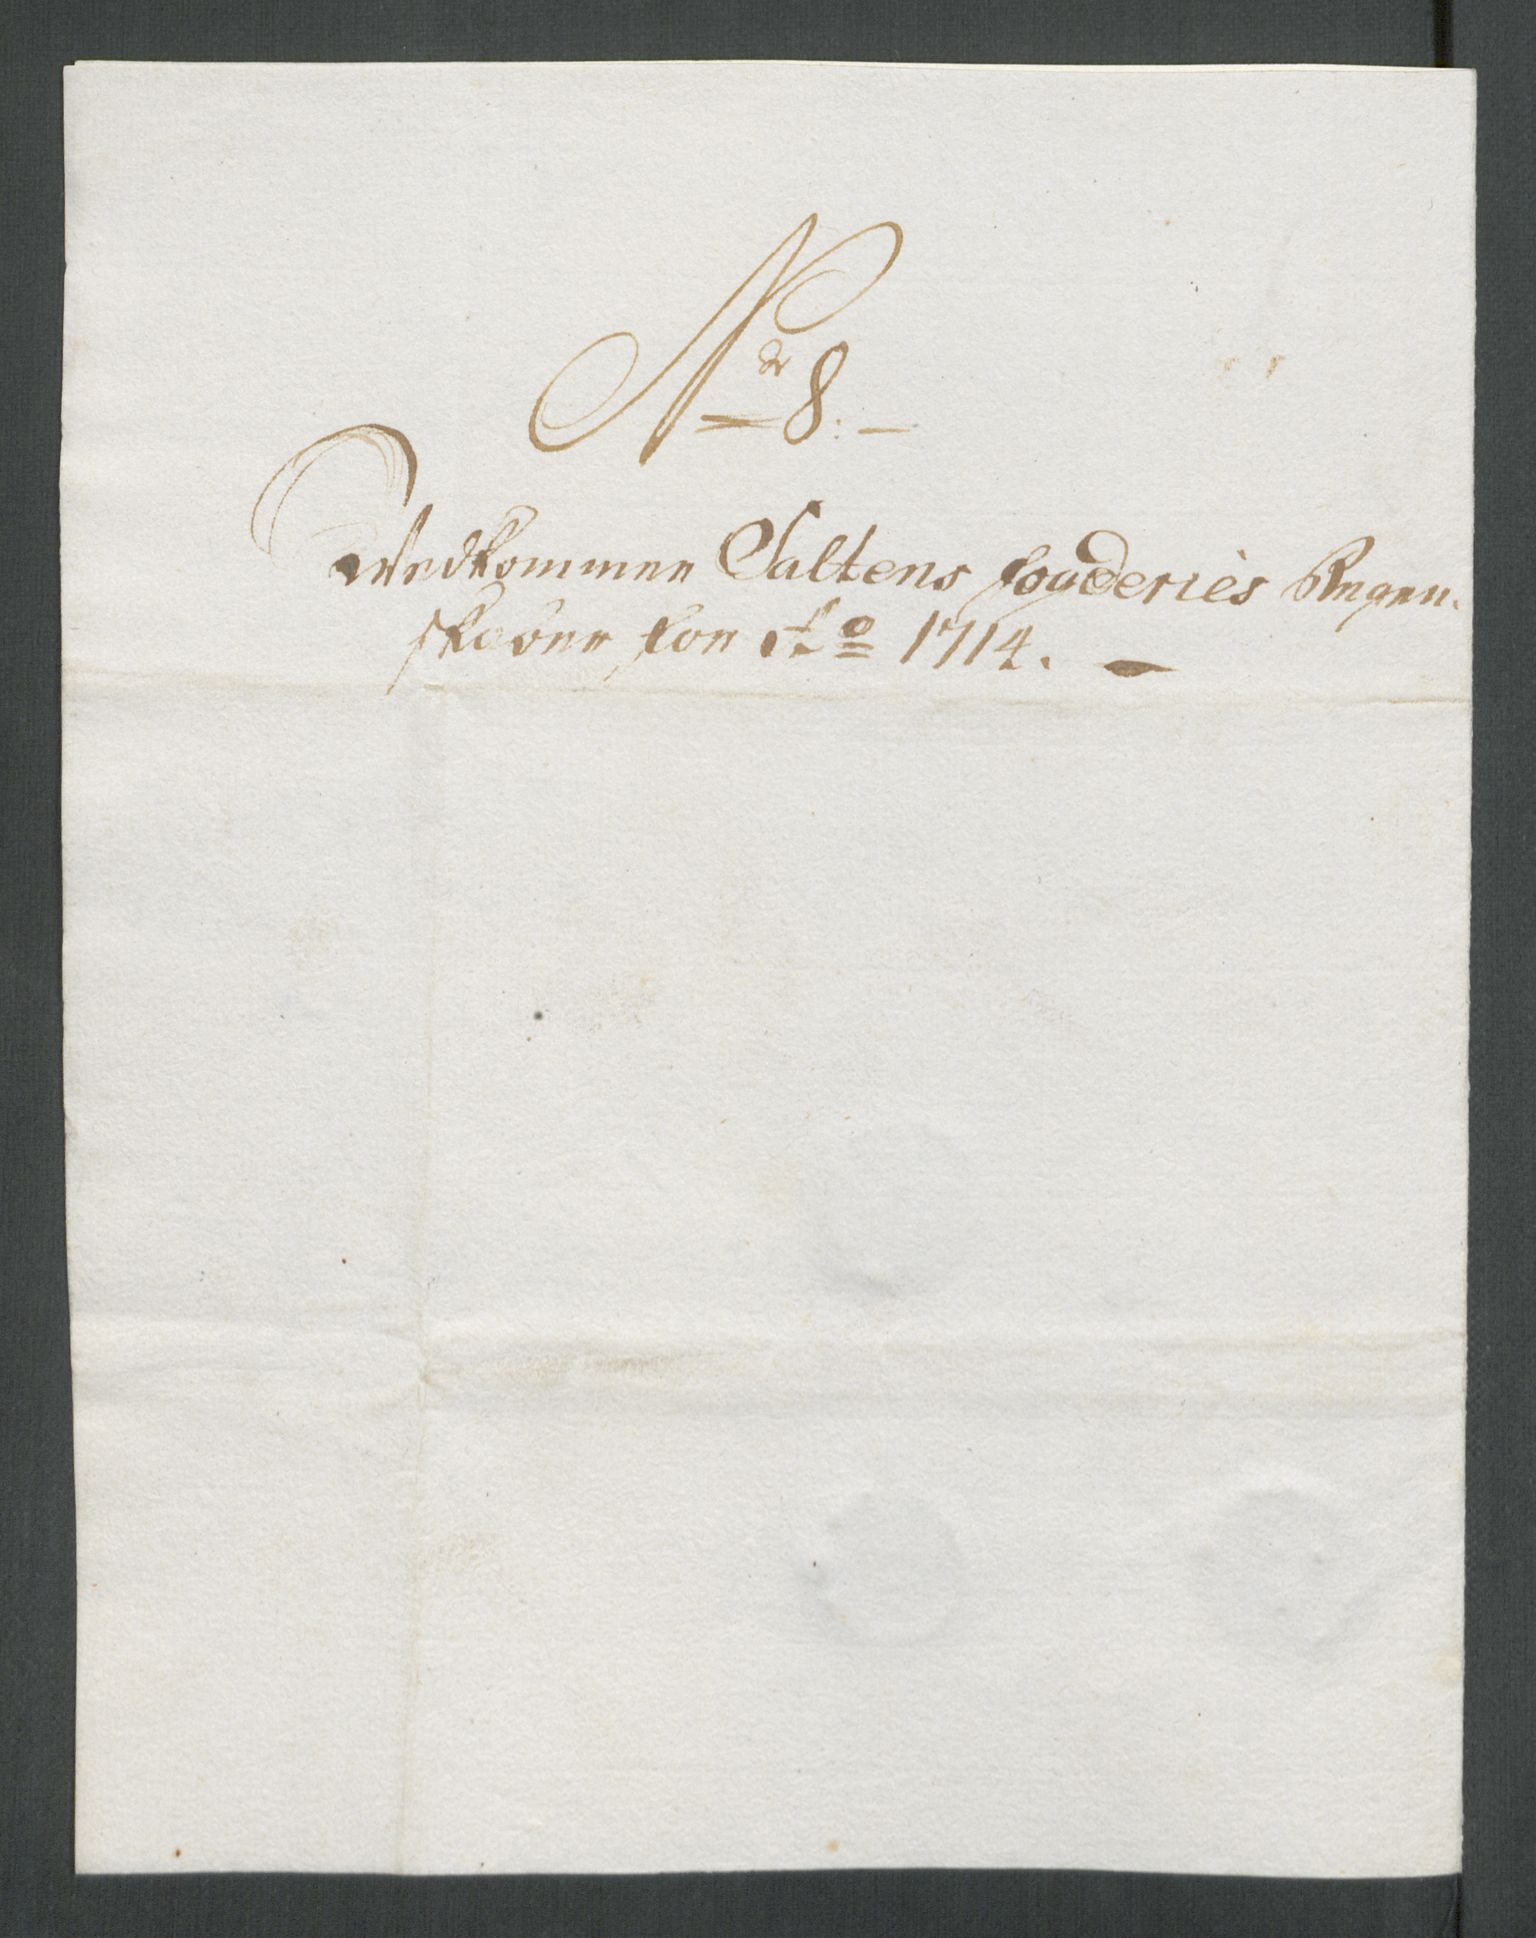 Nr 8:
Vedkommer Saltens fogderies Regen-
skaber for Ao 1714.